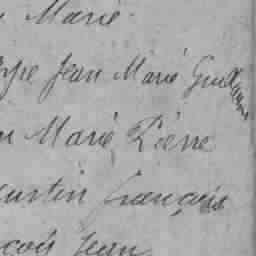 Marie
Jean Marie Guillaume
Marie Pierre
ustin François
çois Jean